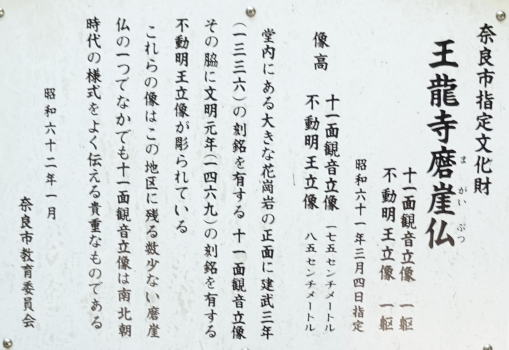 奈良市指定文化財
王龍寺磨崖仏
ま がい ぶつ
十一面観音立像 一躯
不動明王立像 一躯
昭和六十一年三月四日指定
像高 十一面観音立像 一七五センチメートル
不動明王立像 八五センチメートル
堂内にある大きな花崗岩の正面に建武三年
(一三三六)の刻銘を有する十一面観音立像
その脇に文明元年(一四六九)の刻銘を有する
不動明王立像が彫られている
これらの像はこの地区に残る数少ない磨崖
仏の一つでなかでも十一面観音立像は南北朝
時代の様式をよく伝える貴重なものである
昭和六十二年一月
奈良市教育委員会